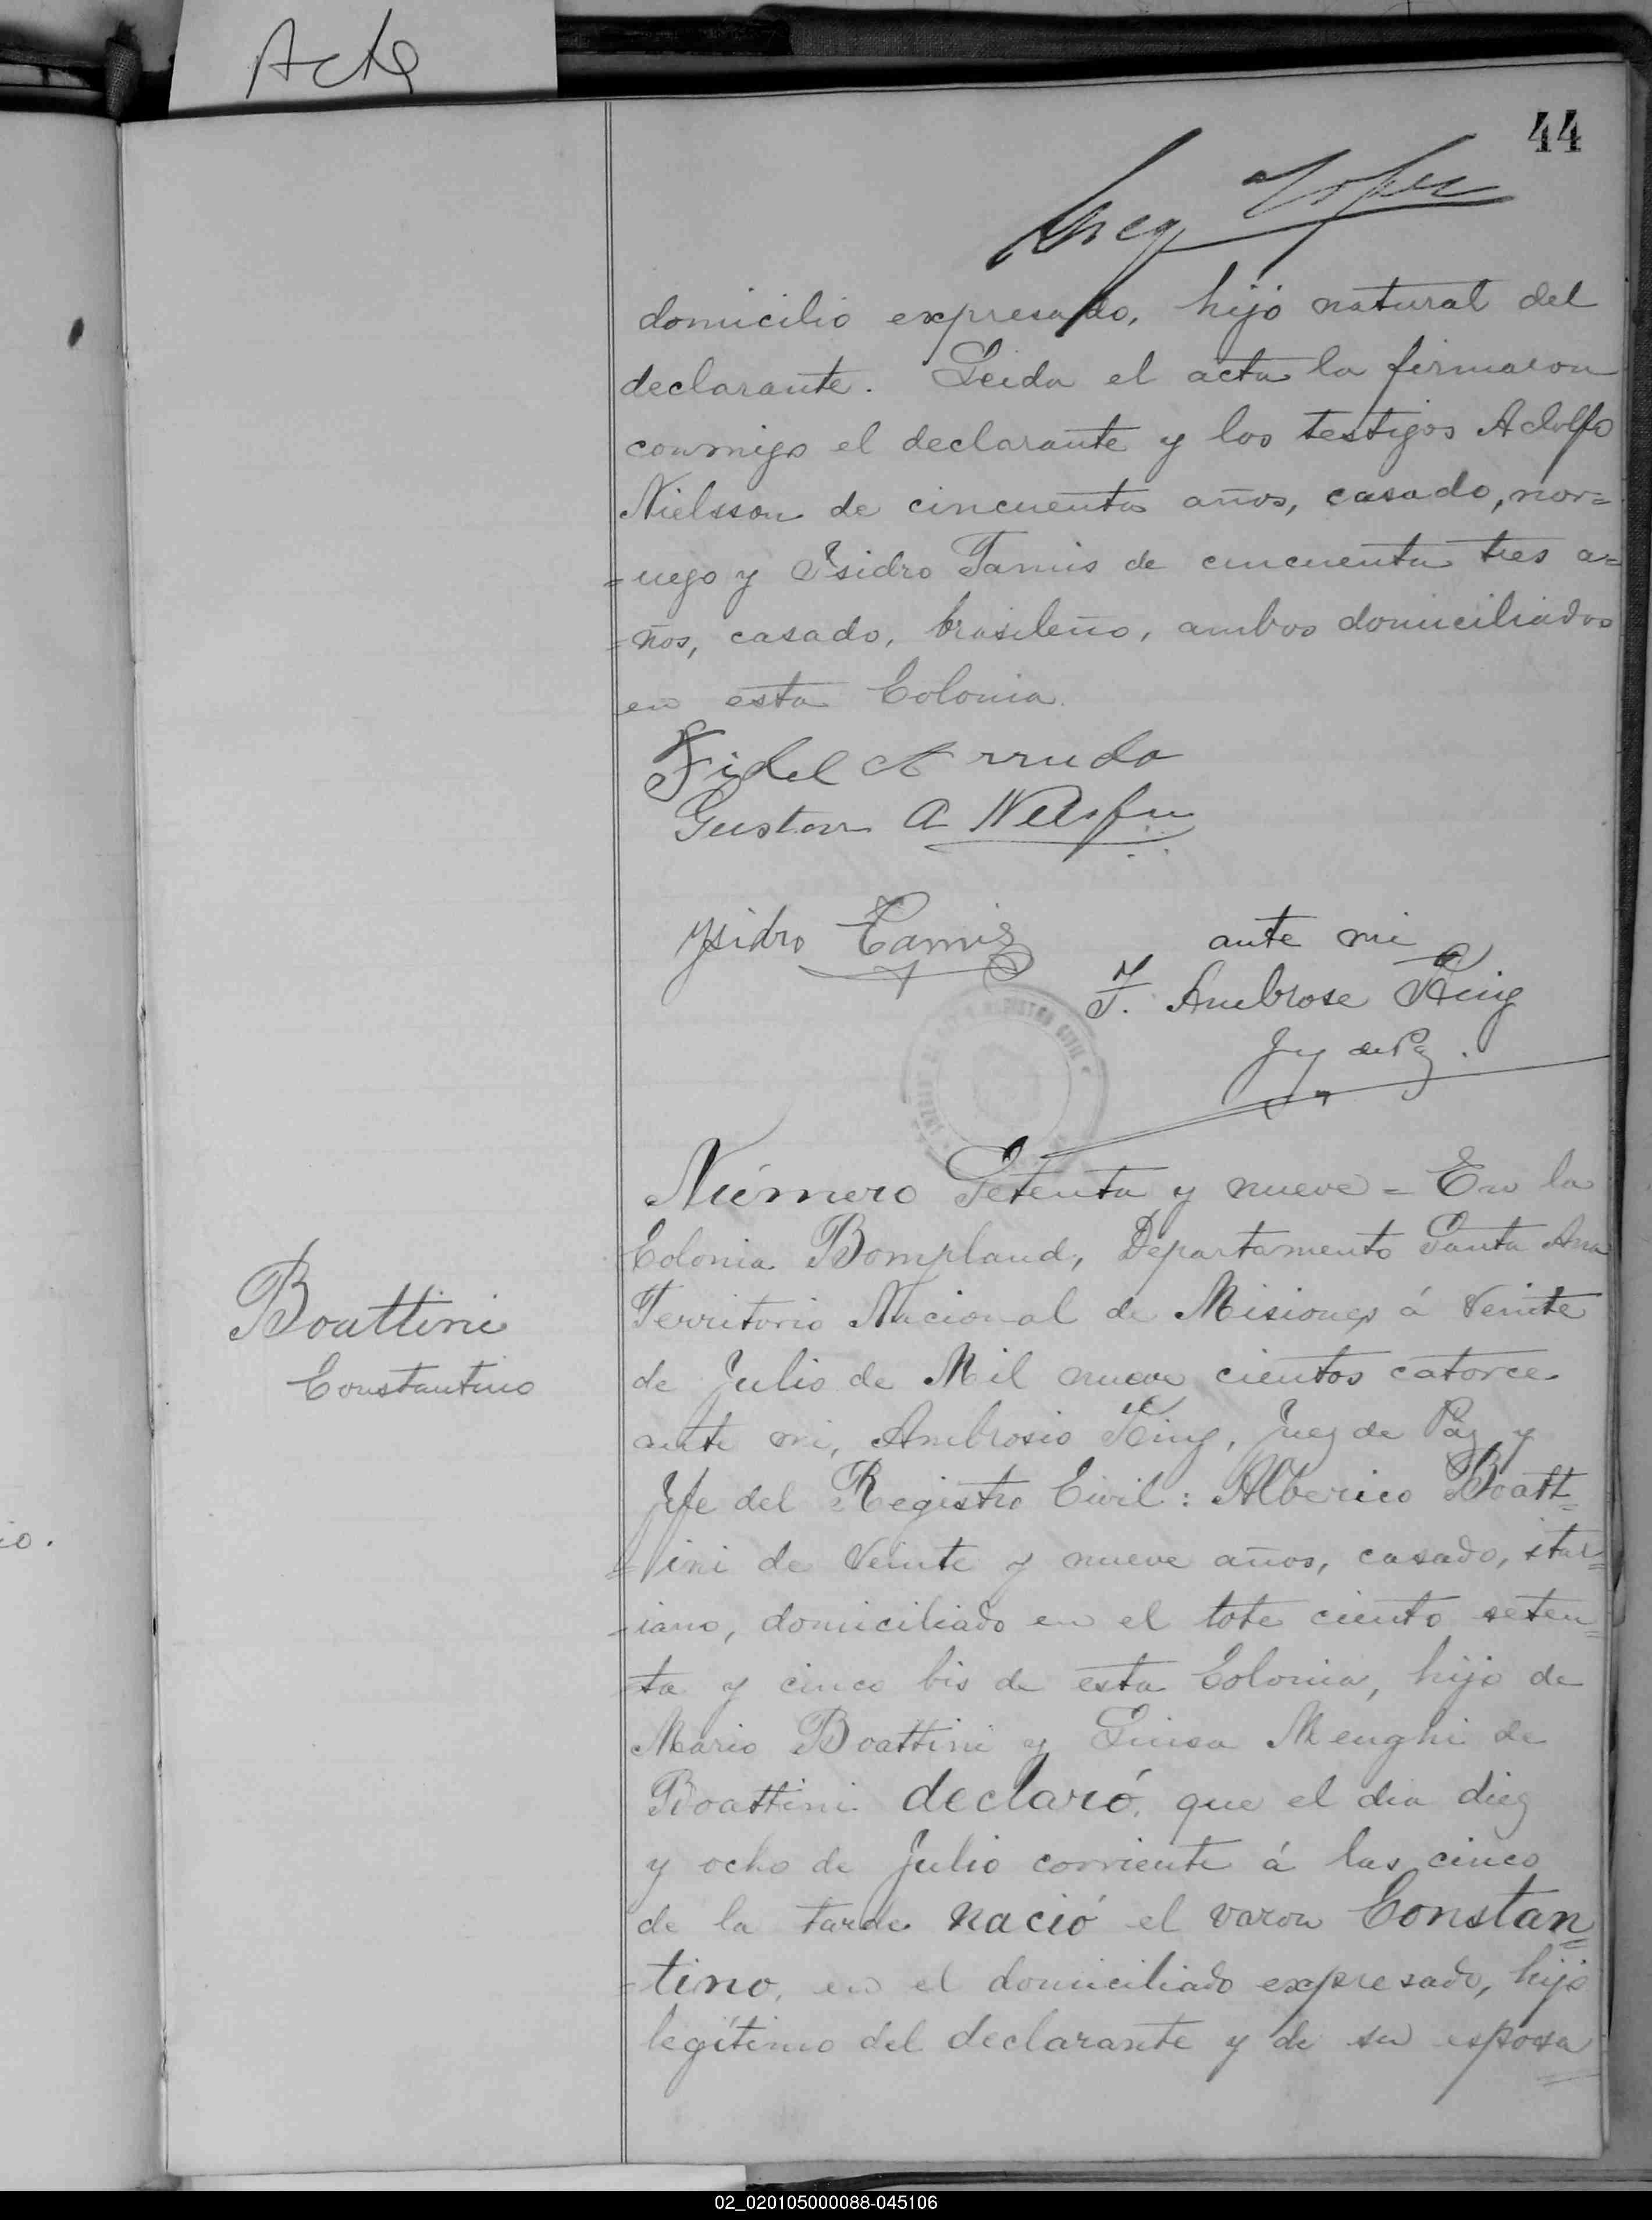 Acta
44
domicilio expresado, hijo natural del
declarante. Leida el acta la firmaron
conmigo el declarante y los testigos Adolfo
Nielsson de cincuenta años, casado, nor=
=uego y Isidro Tamis de cincuenta tres a=
=ños, casado, brasileño, ambos domiciliados
en esta Colonia.
Fidel Arruda
Gustav A
Ysidro Tamis
ante mi
F. Ambrose King
Número Setenta y nueve = En la
Colonia Bompland, Departamento Santa Ana
Territorio Nacional de Misiones á Veinte
de Julio de Mil nueve cientos catorce
ante mi, Ambrosio King, Juez de Paz y
Jefe del Registro Civil: Alberico Boatt=
=ini de Veinte y nueve años, casado, ital=
=iano, domiciliado en el lote ciento seten=
ta y cinco bis de esta Colonia, hijo de
Mario Boattini y Luisa Menghi de
Boattini declaró: que el dia diez
y ocho de Julio corriente á las cinco
de la tarde nació el varon Constan=
=tino, en el domiciliado expresado, hijo
legítimo del declarante y de su esposa
Boattini
Constantino
io.
02_020105000088-045106